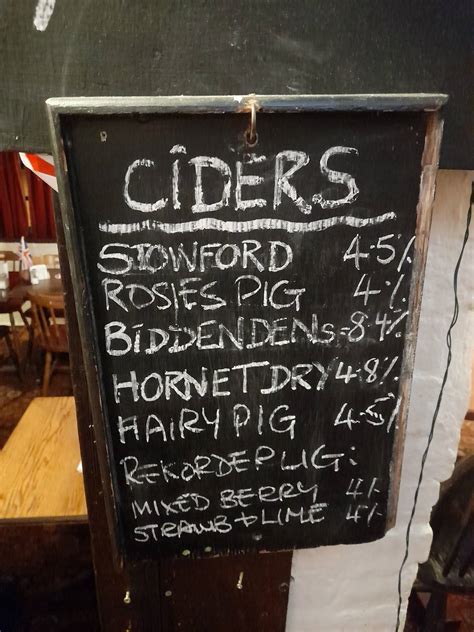 CIDERS
STOWFORD 4.5%
ROSIES PIG 4%
BIDDENDENS 8.4%
HORNET DRY 4.8%
HAIRY PIG 4.5%
REKORDERLIG:
MIXED BERRY 4%
STRAWB + LIME 4%